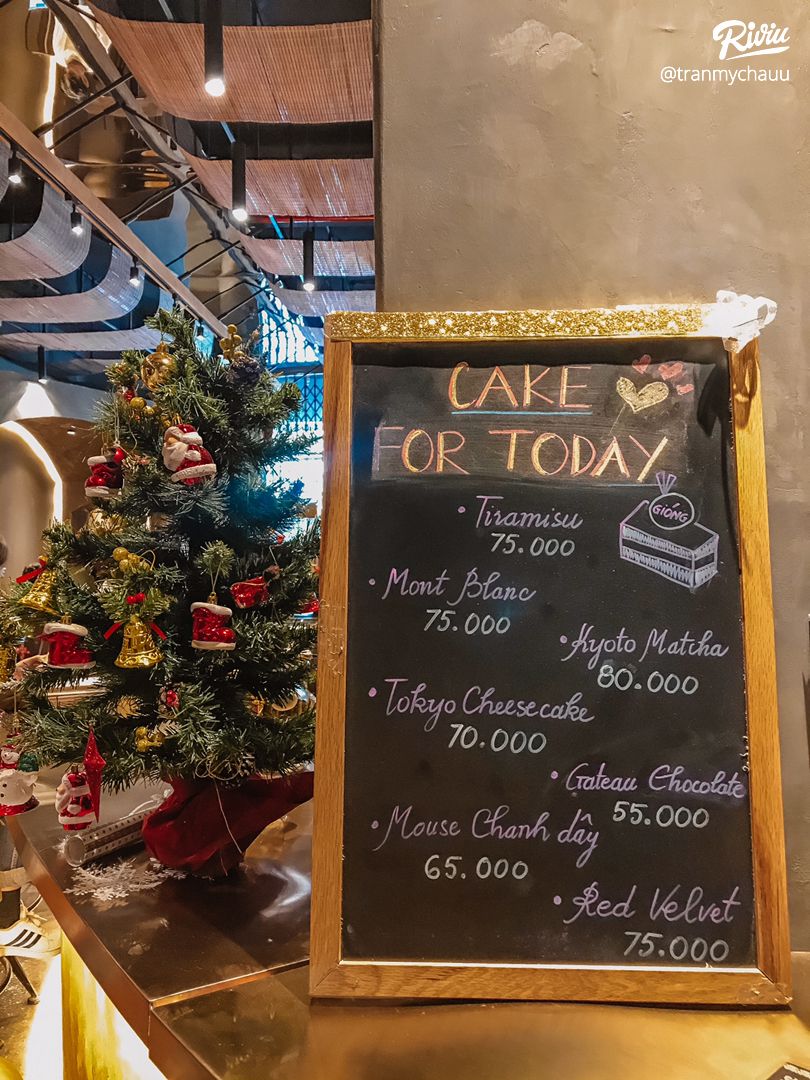 Riviu
@tranmychauu
CAKE
FOR TODAY
GIÓNG
• Tiramisu
75.000
• Mont Blanc
75.000
• Kyoto Matcha
80.000
• Tokyo Cheesecake
70.000
• Gateau Chocolate
55.000
• Mouse Chanh dây
65.000
• Red Velvet
75.000